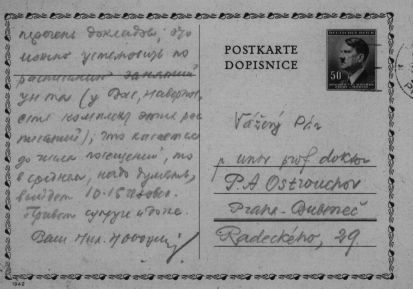 перечень докладов, это
можно установить по
расписаниям занятий
ун-та (у Вас, наверное,
есть комплект этих рас
писаний); что касается
до числа посещений, то
в среднем, надо думать,
выйдет 10-15 человек.
Привет супруге и дочке.
Ваш Ник.
POSTKARTE
DOPISNICE
DEUTSCHES REICH
50
Vážený Pán
p. univ prof doktor
P.A Ostrouchov
Praha-Bubeneč
Radeckého, 29.
1942